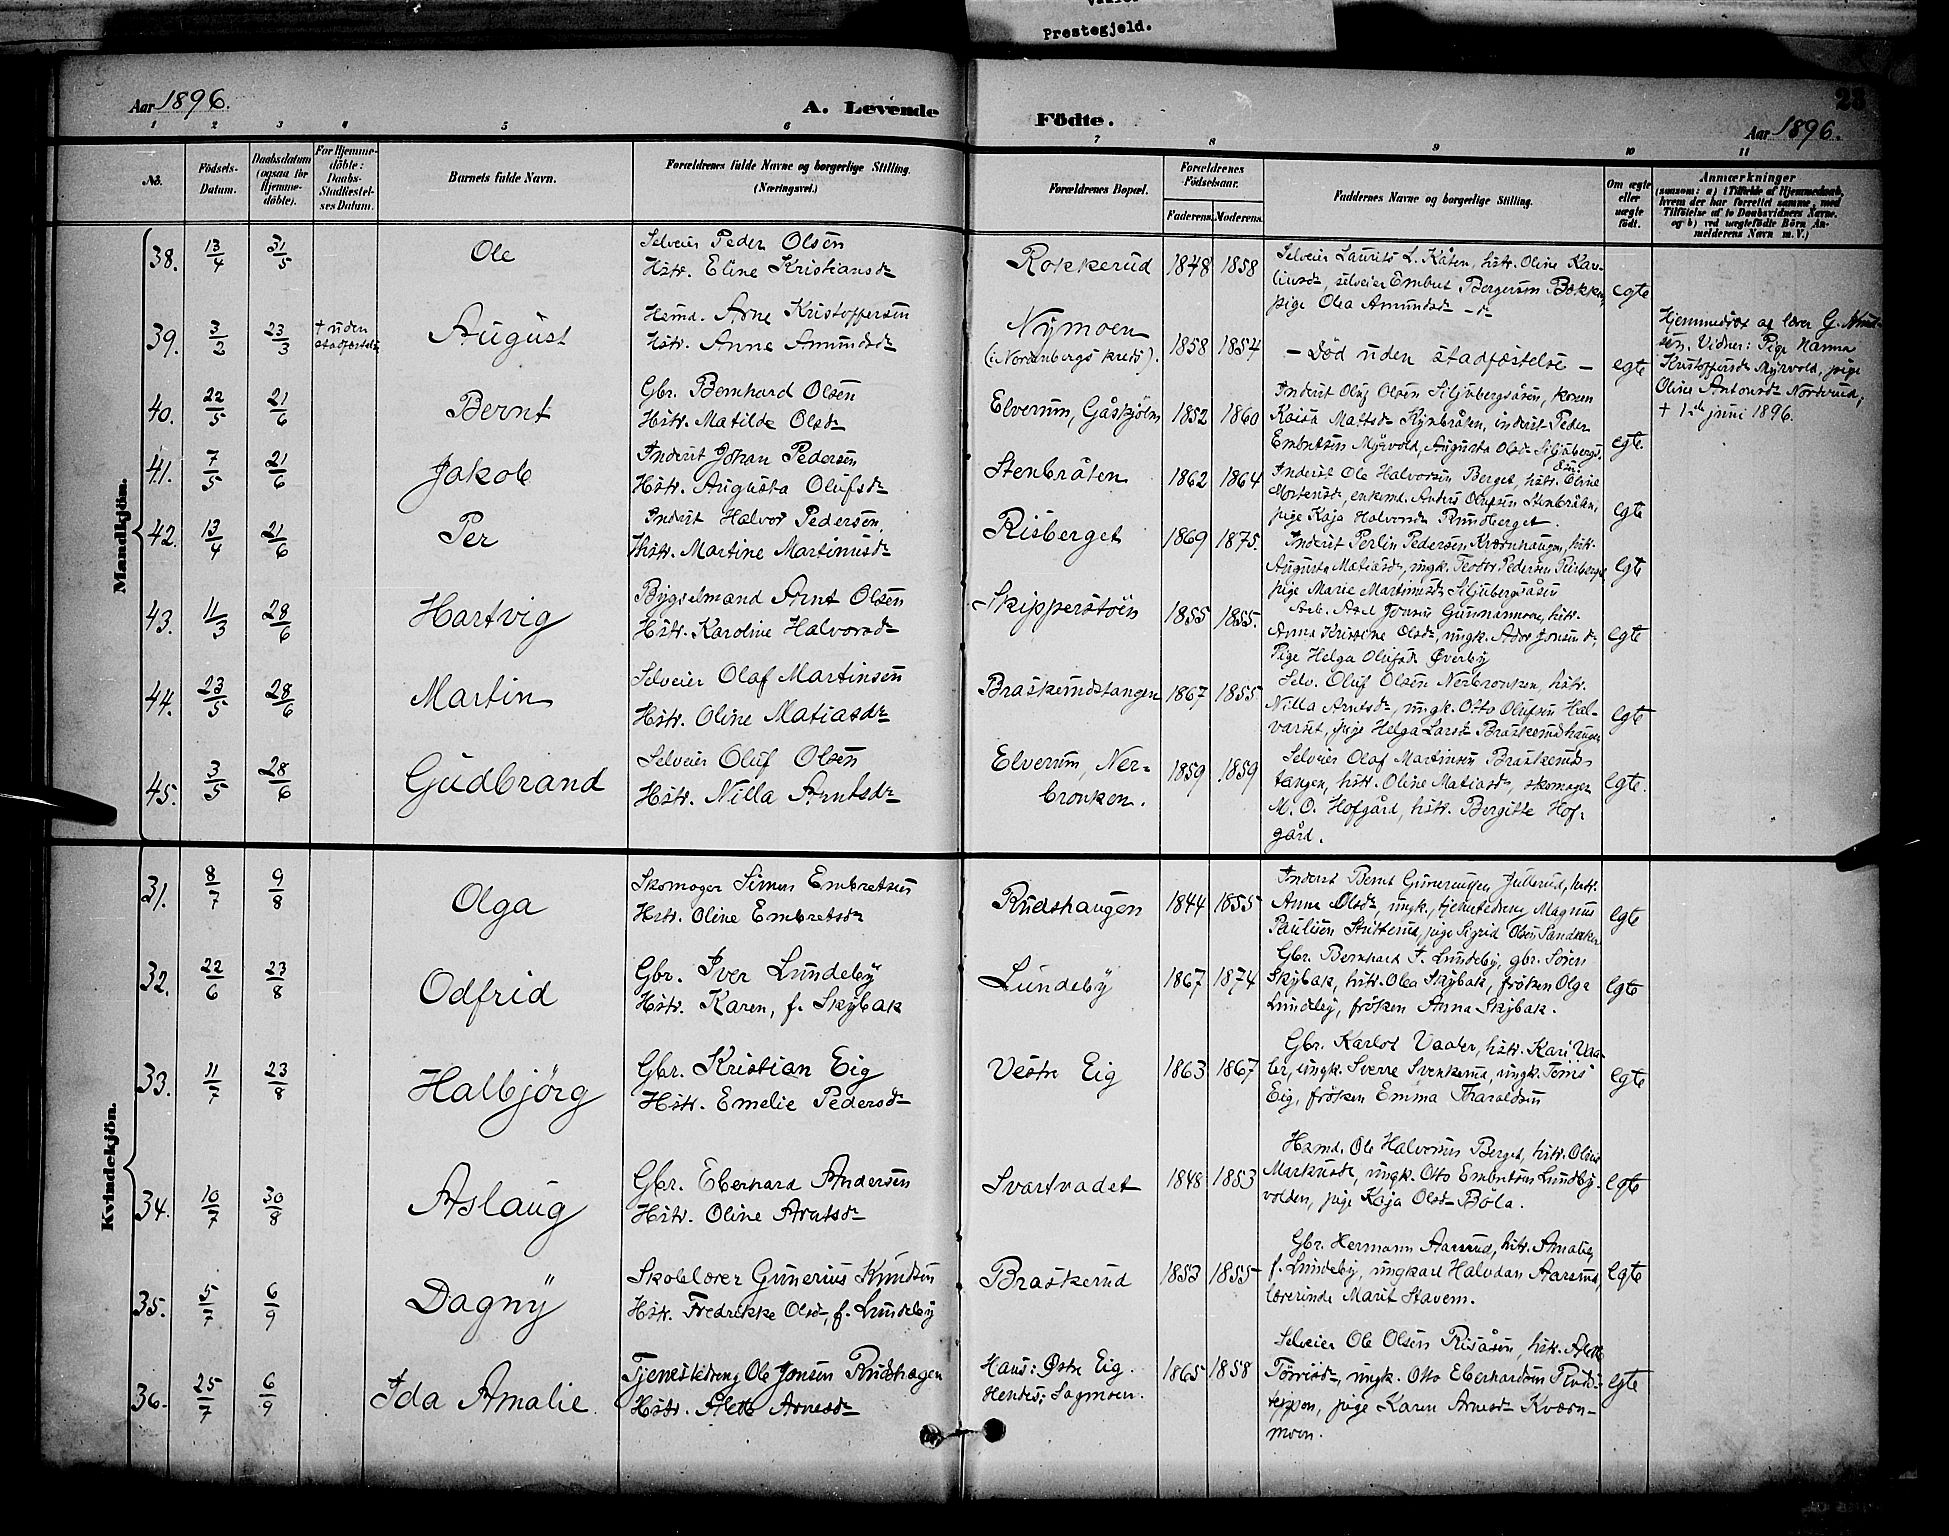 Prestegjeld.
Aar 1896.
A. Levende Födte.
23
Aar 1896.
1 2 3 4 5 6 7 8 9 10 11
No.
Födsels-Datum.
Daabsdatum (ogsaa for Hjemme-döbte).
For Hjemme-döbte: Daabs-Stadfæstel-ses Datum.
Barnets fulde Navn.
Forældrenes fulde Navne og borgerlige Stilling. (Næringsvei.)
Forældrenes Bopæl.
Forældrenes Födselsaar.
Faderens. Moderens.
Faddernes Navne og borgerlige Stilling.
Om ægte eller uægte födt.
Anmærkninger
(saasom: a) i Tilfælde af Hjemmedaab, hvem der har forrettet samme, med Tilföielse af to Daabsvidners Navne. og b) ved uægtefödte Börn An-melderens Navn m. V.)
Mandkjön.
38. 13/4 31/5 Ole
Selveier Peder Olsen
Hstr. Eline Kristiansdr
Rokkerud 1848 1858
Selveier Laurits L. Kåten, hstr. Oline Kar-
linsdr, selveier Embret Bergersen Bekken,
pige Olea Amundsdr -dr
egte
39. 3/2 23/3 † uden stadfæstelse August
Hsmd. Arne Kristoffersen
Hstr. Anne Amundsdr
Nymoen
(i Nordenbergs kreds). 1858 1854
- Död uden stadfæstelse -
egte
Hjemmedöbt af lærer G. Knud-
sen. Vidner: Pige Hanna
Kristoffersdr Myrvold, pige
Oline Antonsdr Norderud,
† 1ste juni 1896.
40. 22/5 21/6 Bernt
Gbr. Bernhard Olsen
Hstr. Matilde Olsdr
Elverum, Gåskjölen 1852 1860
Inderst Oluf Olsen Siljubergsåsen, konen
Kaisa Mattsdr Kynbråten, inderst Peder
Embretsen Myrvold, Augusta Olsdr Siljubergs-
åsen
egte
41. 7/5 21/6 Jakob
Inderst Johan Pedersen
Hstr. Augusta Olufsdr
Stenbråten 1862 1864
Inderst Ole Halvorsen Berget, hstr. Eline
Mortensdr, enkemd. Anders Olufsen Stenbråten,
pige Kaja Halvorsdr Rundberget.
egte
42. 13/4 21/6 Per
Inderst Halvor Pedersen,
Hstr. Martine Martinusdr
Risberget 1869 1875.
Inderst Perlin Pedersen Kværnhaugen, hstr.
Augusta Matiasdr, ungk. Teodor Pedersen Risberget,
pige Marie Martinusdr Siljubergsåsen
egte
43. 11/3 28/6 Hartvig
Bygselmand Arnt Olsen
Hstr. Karoline Halvorsdr
Skipperstöen 1855 1855.
Arb. Axel Jonsen Gunnarmoen, hstr.
Anna Kristine Olsdr, ungk. Adov Jonsen dr,
Pige Helga Olufsdr Øverby
egte
44. 23/5 28/6 Martin
Selveier Olaf Martinsen
Hstr. Oline Matiasdr
Braskerudstangen 1867 1855
Selv. Oluf Olsen Nerbronken, hstr.
Nilla Arntsdr, ungk. Otto Olufsen Hal-
varset, pige Helga Larsdr Braskerudhaugen
egte
45. 3/5 28/6 Gudbrand
Selveier Oluf Olsen
Hstr. Nilla Arntsdr
Elverum, Ner-
bronken. 1859 1859
Selveier Olaf Martinsen Braskeruds-
tangen, hstr. Oline Matiasdr, skomager
M. O. Hofgård, hstr. Bergitte Hof-
gård.
egte.
Kvindekjön.
31. 8/7 9/8 Olga
Skomager Simen Embretsen
Hstr. Oline Embretsdr
Rudshaugen 1844 1855
Inderst Bernt Guneriusen Julterud, hstr.
Anne Olsdr, ungk., tjenestedreng Magnus
Paulsen Skitterud, pige Sigrid Olsen Sandaker
egte
32. 22/6 23/8 Odfrid
Gbr. Iver Lundeby
Hstr. Karen, f. Skybak
Lundeby 1867 1874
Gbr. Bernhard I. Lundeby, gbr. Sören
Skybak, hstr. Olea Skybak, fröken Olga
Lundeby, fröken Anna Skybak.
egte
33. 11/7 23/8 Halbjörg
Gbr. Kristian Eig
Hstr. Emelie Pedersdr
Vestre Eig 1863 1867
Gbr. Karlot Vaaler, hstr. Kari Vaa-
ler, ungk. Sverre Svenkerud, ungk. Tönis
Eig, fröken Emma Tharaldsen
egte
34. 10/7 30/8 Aslaug
Gbr. Eberhard Andersen
Hstr. Oline Arntsdr
Svartvadet 1848 1853
Hsmd. Ole Halvorsen Berget, hstr. Oline
Markusdr, ungk. Otto Embretsen Lundby-
volden, pige Kaja Olsdr Böla.
egte
35. 5/7 6/9 Dagny
Skolelærer Gunerius Knudsen
Hstr. Fredrikke Olsdr, f. Lundeby
Braskerud 1853 1855
Gbr. Hermann Aarsrud, hstr. Amalie,
f. Lundeby, ungkarl Halvdan Aarsrud,
lærerinde Marit Stavem.
egte
36. 25/7 6/9 Ida Amalie
Tjenestedreng Ole Jonsen Rudshagen
Hstr. Alette Arnesdr
Hans: Østre Eig.
Hendes: Sagmoen. 1865 1858
Selveier Ole Olsen Risåsen, hstr. Alette
Törrisdr, ungk. Otto Eberhardsen Ruds-
teppen, pige Karen Arnesdr Kværn-
moen.
egte